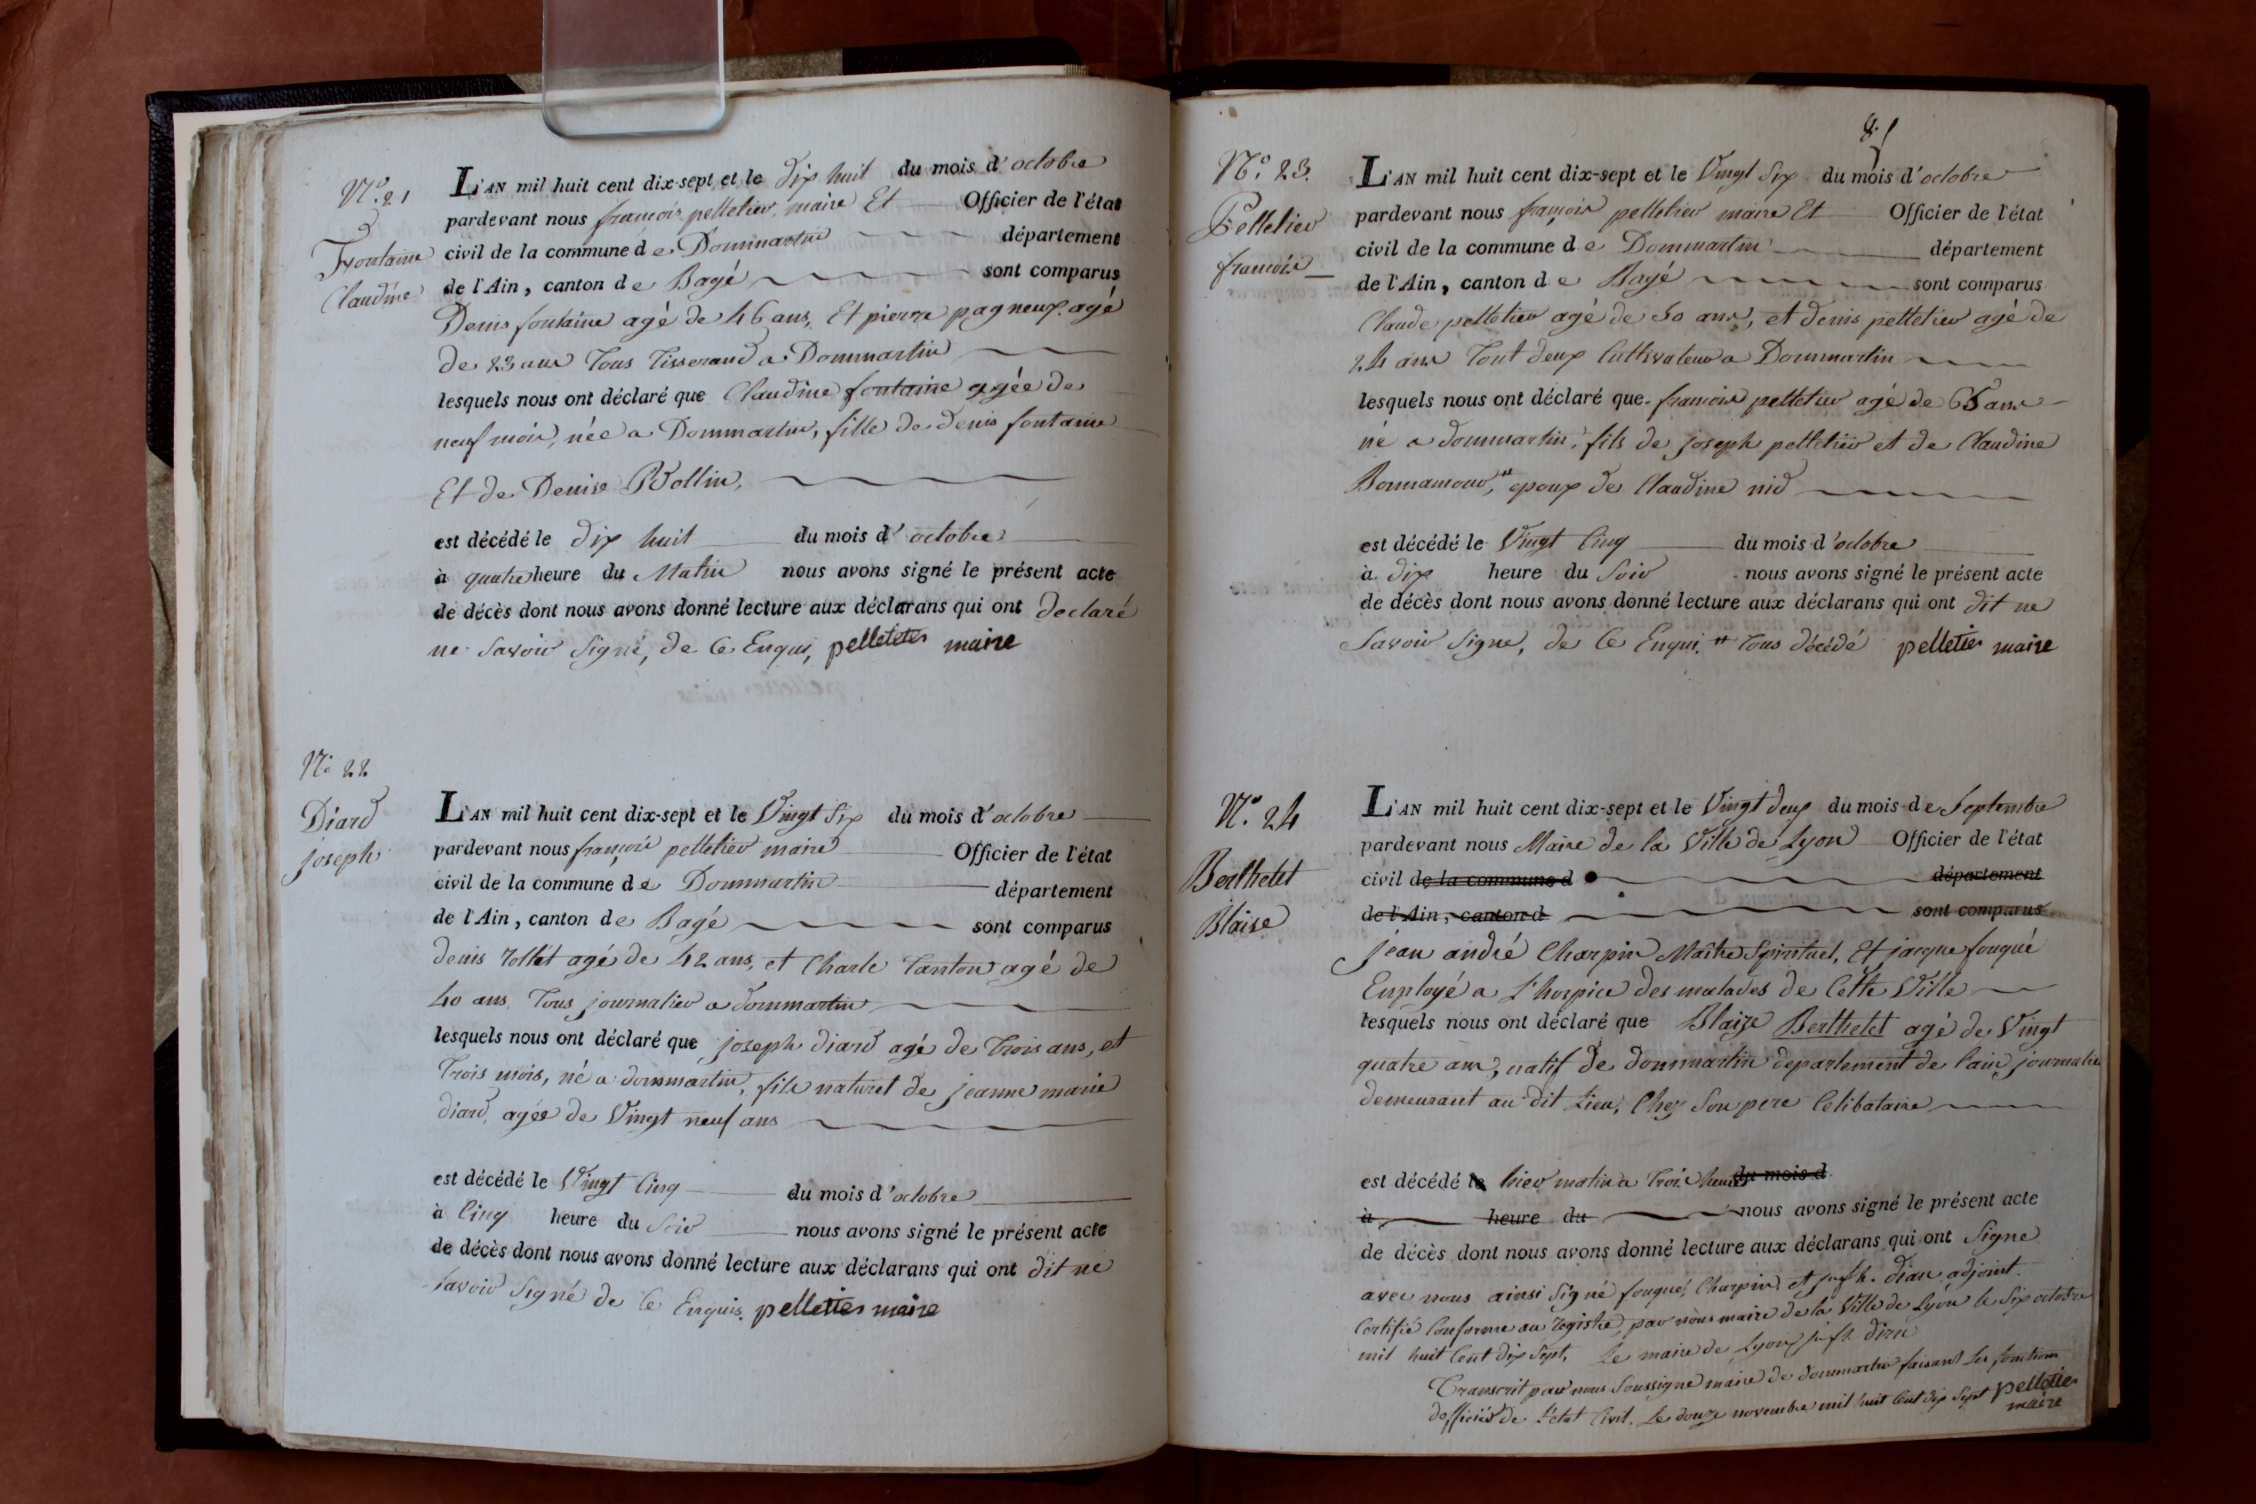 N.º 21
Fontaine
Claudine
L'AN mil huit cent dix-sept et le dix huit du mois d'octobre
pardevant nous françois pelletier, maire Et Officier de l'état
civil de la commune de Dommartin département
de l'Ain, canton de Bagé sont comparus
Denis fontaine agé de 46 ans, Et pierre pagneux agé
de 23 ans Tous Tisserand a Dommartin
lesquels nous ont déclaré que Claudine fontaine agée de
neuf mois, née a Dommartin, fille de denis fontaine
Et de Denise Bollin,
est décédé le dix huit du mois d'octobre
à quatre heure du Matin nous avons signé le présent acte
de décès dont nous avons donné lecture aux déclarans qui ont declaré
ne Savoir Signé, de Ce Enquis, pelletier maire
Nº 22
Diard
joseph
L'AN mil huit cent dix-sept et le Vingt Six du mois d'octobre
pardevant nous françois pelletier maire Officier de l'état
civil de la commune de Dommartin département
de l'Ain, canton de Bagé sont comparus
denis Tollet agé de 42 ans, et Charle Tanton agé de
40 ans Tous journalier a dommartin
lesquels nous ont déclaré que joseph diard agé de Trois ans, et
Trois mois, né a dommartin, fils naturel de jeanne marie
diard, agée de Vingt neuf ans
est décédé le Vingt Cinq du mois d'octobre
à Cinq heure du Soir nous avons signé le présent acte
de décès dont nous avons donné lecture aux déclarans qui ont dit ne
Savoir Signé de Ce Enquis. pelletier maire
N.º 23.
Pelletier
françois
L'AN mil huit cent dix-sept et le Vingt Six du mois d'octobre
pardevant nous françois pelletier maire Et Officier de l'état
civil de la commune de Dommartin département
de l'Ain, canton de Bagé sont comparus
Claude pelletier agé de 50 ans, et denis pelletier agé de
24 ans Tout deux Cultivateur a Dommartin
lesquels nous ont déclaré que françois pelletier agé de ans
né a dommartin, fils de joseph pelletier et de Claudine
Bonnamour," epoux de Claudine nid
est décédé le Vingt Cinq du mois d'octobre
à dix heure du Soir nous avons signé le présent acte
de décès dont nous avons donné lecture aux déclarans qui ont dit ne
Savoir Signe, de Ce Enqui. " Tous décédé pelletier maire
N.º 24
Berthelet
Blaise
L'AN mil huit cent dix-sept et le Vingt deux du mois de Septembre
pardevant nous Maire de la Ville de Lyon Officier de l'état
civil de la commune d département
de l'Ain, canton d sont comparus
jean andré Charpin Maître Spirituel, Et jacque fouqué
Employé a L'hospice des malades de Cette Ville
lesquels nous ont déclaré que Blaize Berthelet agé de Vingt
quatre ans, natif de dommartin departement de l'ain, journalier
demeurant au dit Lieu, Chez Son pere Celibataire
est décédé le hier matin a Trois heures du mois d
à heure du nous avons signé le présent acte
de décès dont nous avons donné lecture aux déclarans qui ont Signe
avec nous ainsi Signé fouqué, Charpin, et adjoint.
Certifié Conforme au registre, par nous maire de la Ville de Lyon le Six octobre
mil huit Cent dix Sept, Le maire de Lyon
Transcrit par nous Soussigné maire de dommartin faisant les fonctions
d'officier de l'état Civil. Le douze novembre mil huit Cent dix Sept pelletier
maire